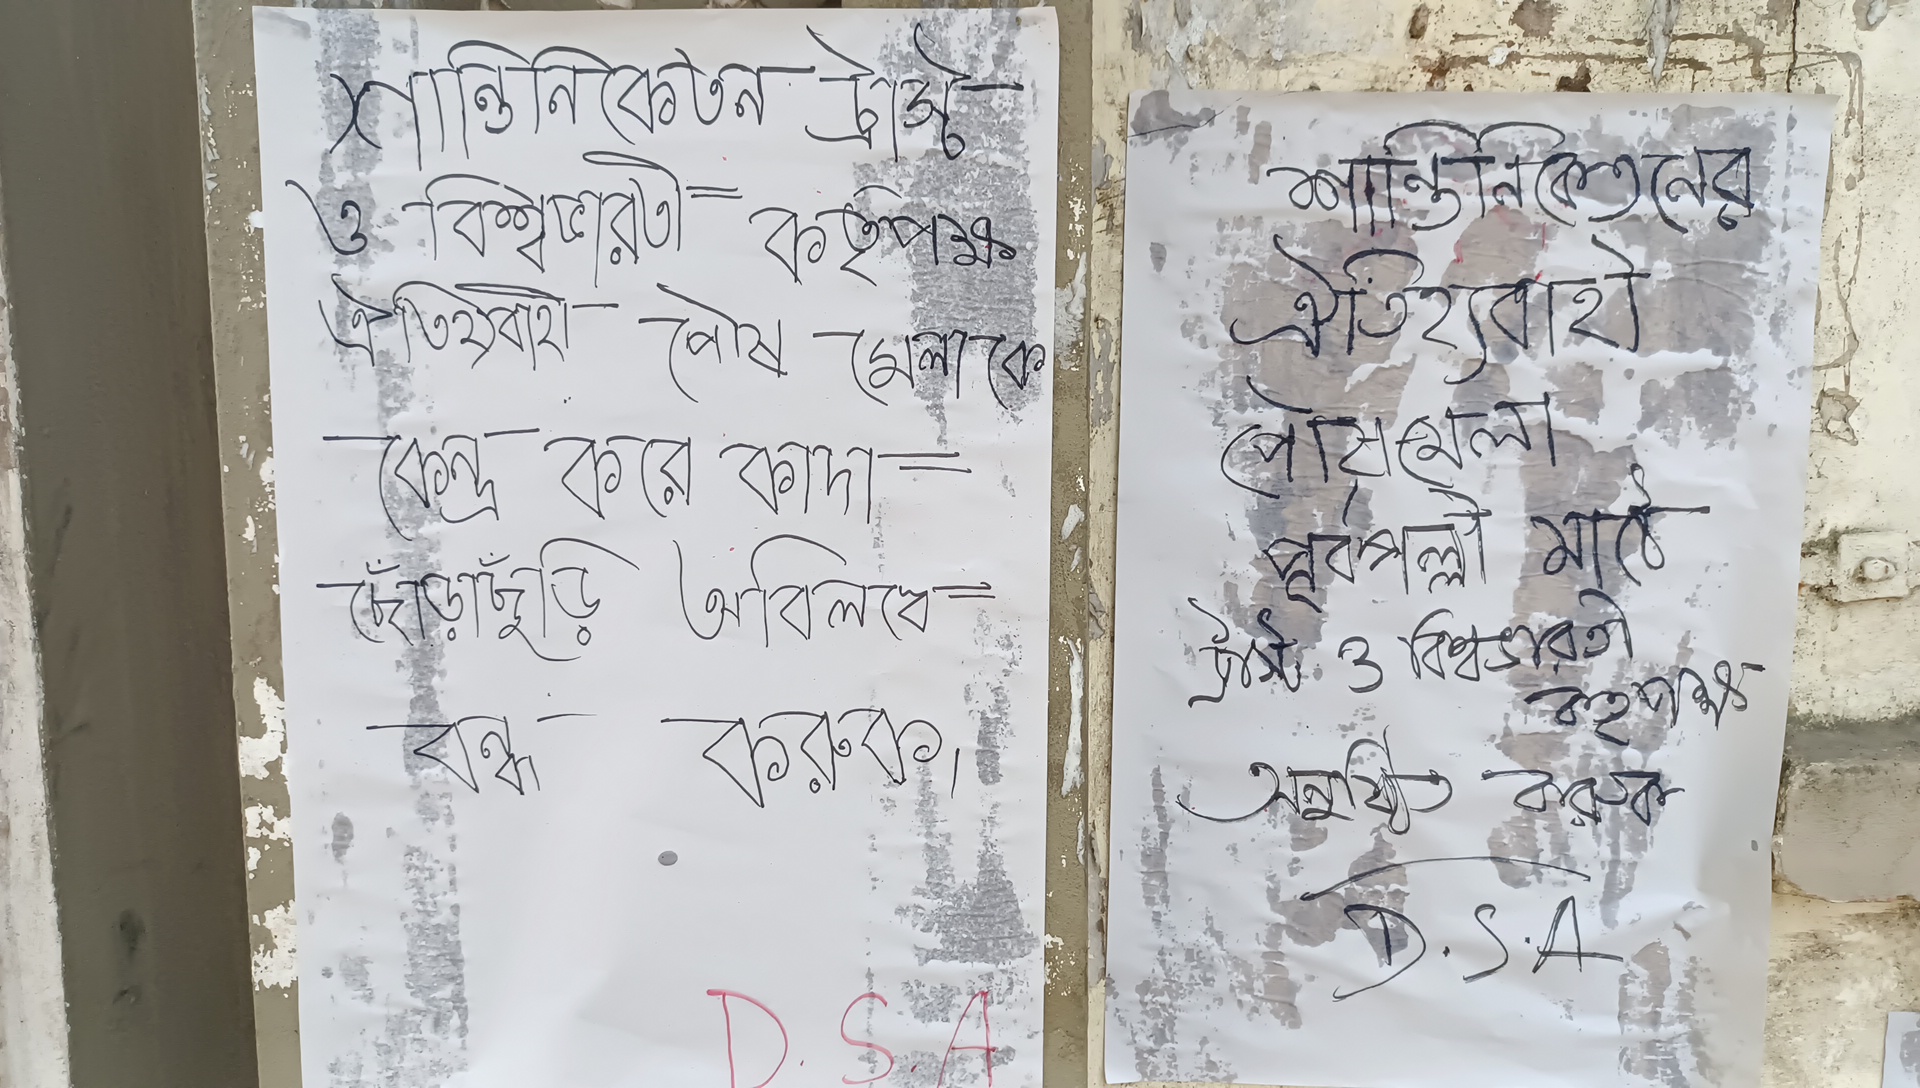 শান্তিনিকেতন ট্রাস্ট
ও বিশ্বভারতী কর্তৃপক্ষ
ঐতিহ্যবাহী পৌষ মেলাকে
কেন্দ্র করে কাদা
ছোঁড়াছুঁড়ি অবিলম্বে
বন্ধ করুক।
D.S.A
শান্তিনিকেতনের
ঐতিহ্যবাহী
পৌষমেলা
পূর্বপল্লী মাঠে
ট্রাস্ট ও বিশ্বভারতী
কর্তৃপক্ষ
অনুষ্ঠিত করুক
D.S.A